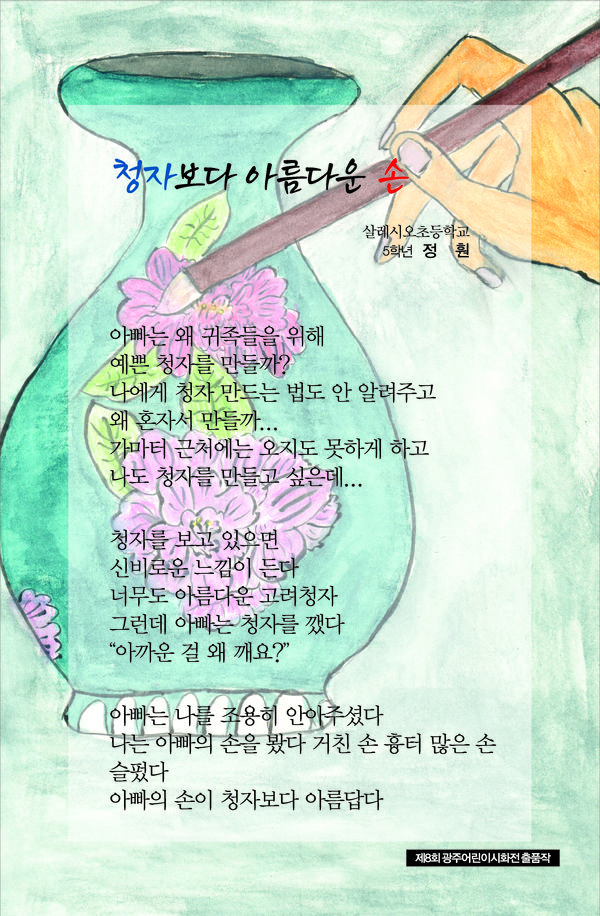 청자보다 아름다운 손
살레시오초등학교
5학년 정 훤
아빠는 왜 귀족들을 위해
예쁜 청자를 만들까?
나에게 청자 만드는 법도 안 알려주고
왜 혼자서 만들까...
가마터 근처에는 오지도 못하게 하고
나도 청자를 만들고 싶은데...
청자를 보고 있으면
신비로운 느낌이 든다
너무도 아름다운 고려청자
그런데 아빠는 청자를 깼다
“아까운 걸 왜 깨요?”
아빠는 나를 조용히 안아주셨다
나는 아빠의 손을 봤다 거친 손 흉터 많은 손
슬펐다
아빠의 손이 청자보다 아름답다
제8회 광주어린이시화전 출품작